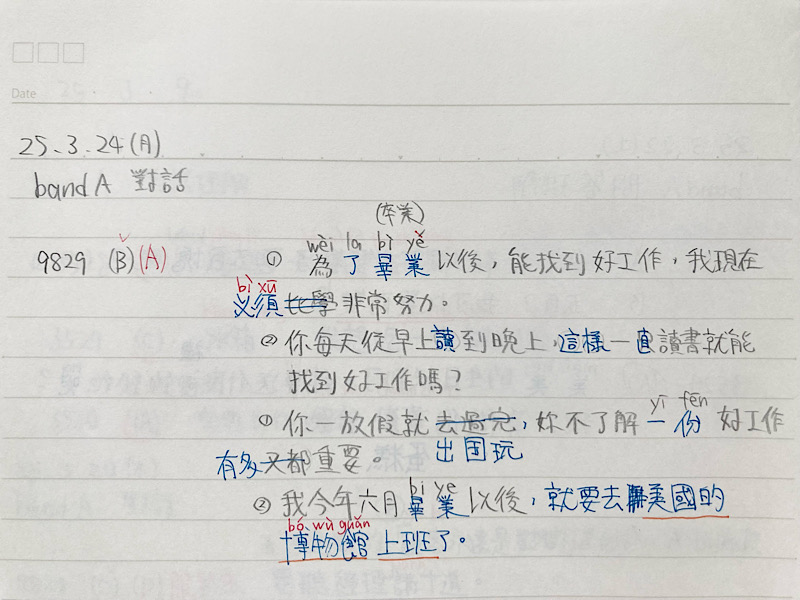 Date
25.3.24(月)
band A 對話
(卒業)
wèi la bì yě
9829 (B)(A) ① 為了畢業以後，能找到好工作，我現在
bì xū
必須非常努力。
② 你每天從早上讀到晚上，這樣一直讀書就能
找到好工作嗎？
yī fēn
① 你一放假就去過完，妳不了解一份好工作
出国玩
有多又都重要。
bi ye
② 我今年六月畢業以後，就要去美國的
bó wù guǎn
博物館上班了。